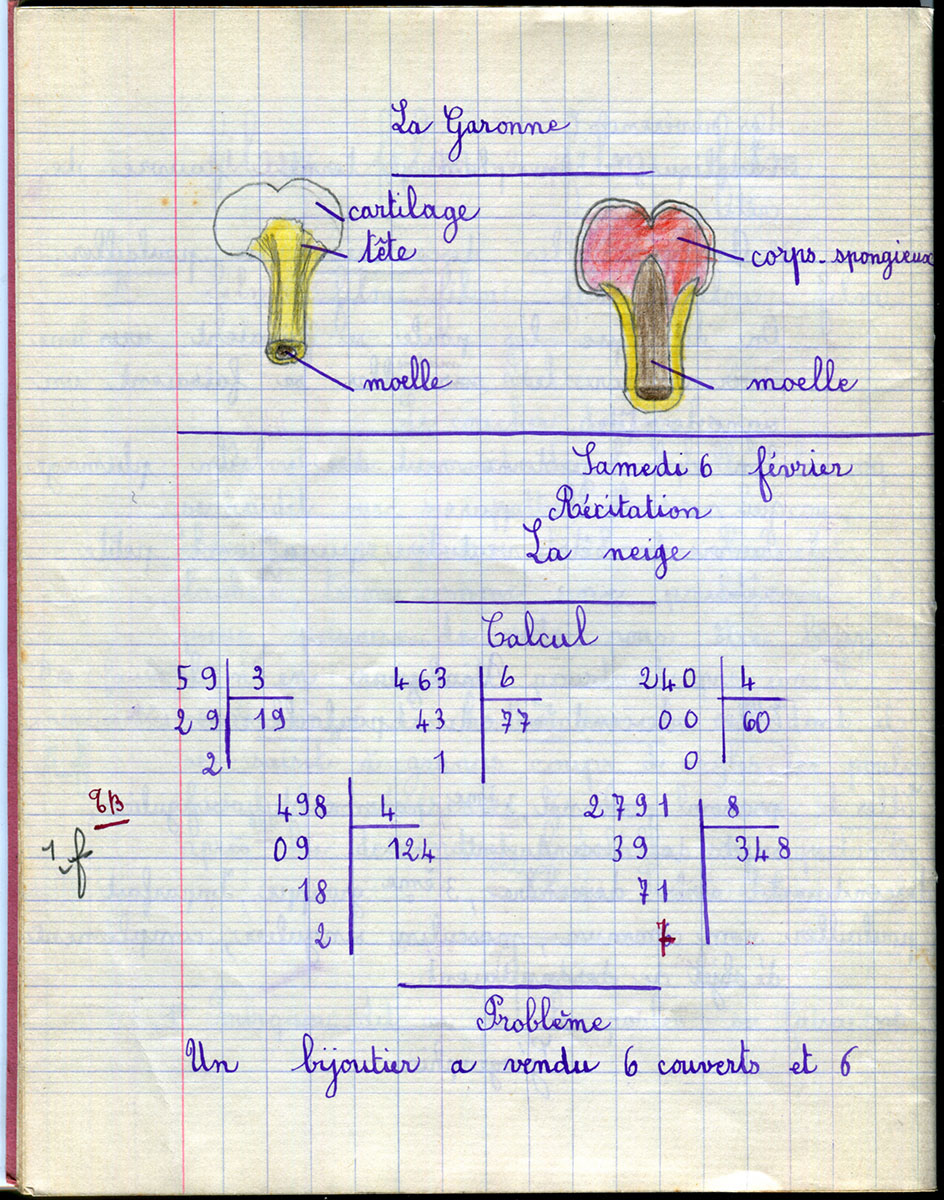 La Garonne
cartilage
tête
corps-spongieux
moelle
moelle
Samedi 6 février
Récitation
La neige
Calcul
59 3 463 6 240 4
29 19 43 77 00 60
2 1 0
TB
1 f
498 4 2791 8
09 124 39 348
18 71
2 7
Problème
Un bijoutier a vendu 6 couverts et 6